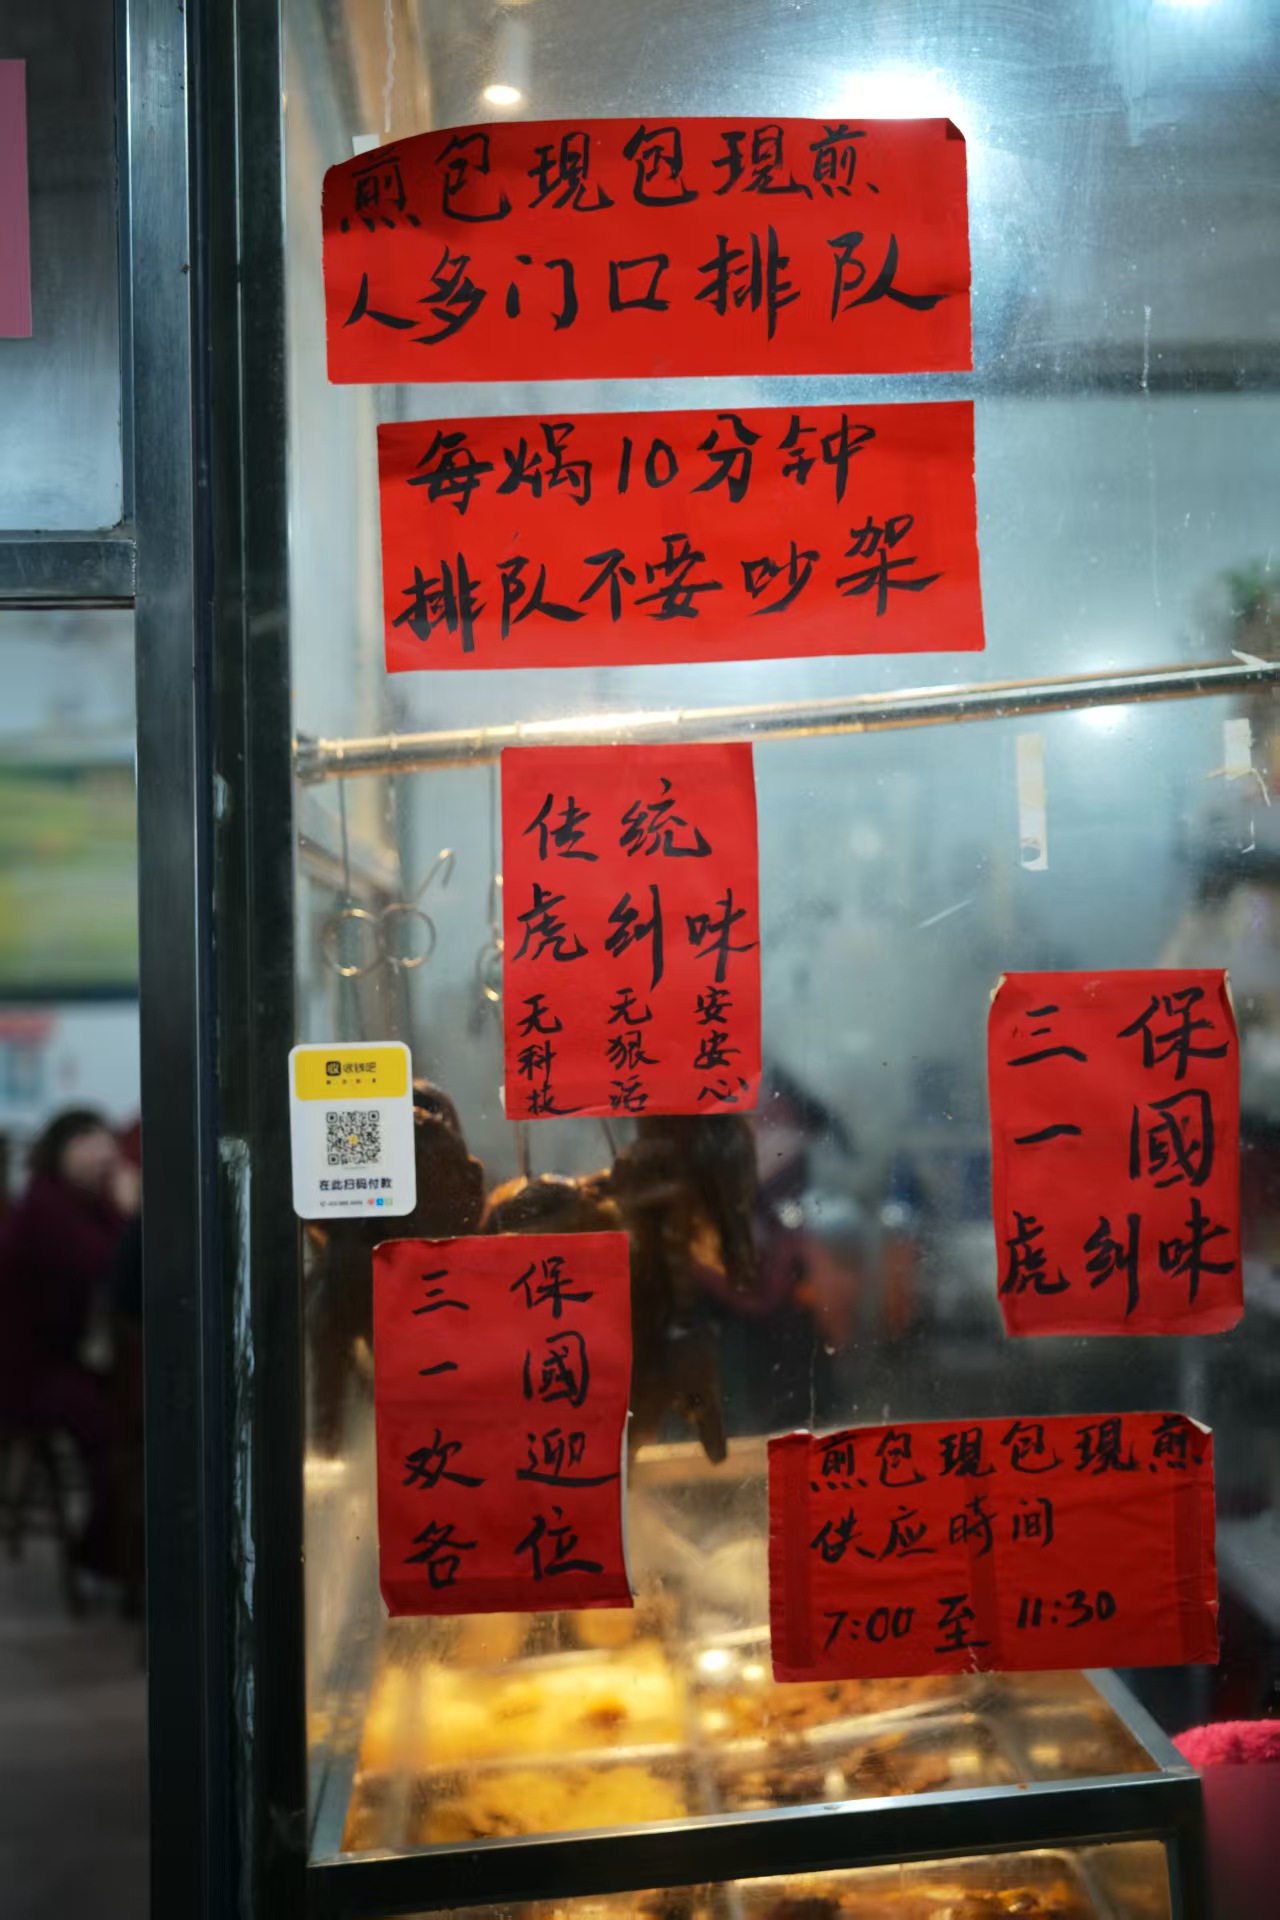 煎包現包現煎
人多门口排队
每焗10分钟
排队不要吵架
传统
虎纠味
无 无 安
科 狠 安
技 活 心
三保
一國
虎纠味
收钱吧
在此扫码付款
三保
一國
欢迎
各位
煎包現包現煎
供应時间
7:00至11:30